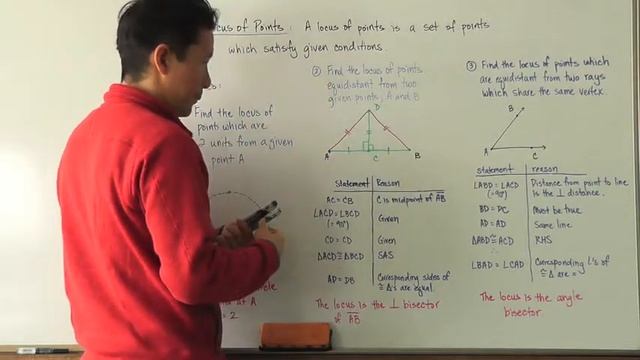 ocus of Points: A locus of points is a set of points
which satisfy given conditions.
s:
Find the locus of
points which are
2 units from a given
point A
cle
at A
= 2
② Find the locus of points
equidistant from two
given points, A and B
D
A C B
Statement Reason
AC = CB C is midpoint of AB
∠ACD = ∠BCD Given
(=90°)
CD = CD Given
△ACD ≅ △BCD SAS
AD = DB Corresponding sides of
≅ △'s are equal.
The locus is the ⊥ bisector
of AB
③ Find the locus of points which
are equidistant from two rays
which share the same vertex.
B
A C
statement reason
∠ABD = ∠ACD Distance from point to line
(=90°) is the ⊥ distance.
BD = DC Must be true
AD = AD Same line
△ABD ≅ ACD RHS
∴
∠BAD = ∠CAD Corresponding ∠'s of
≅ △ are =
The locus is the angle
bisector.